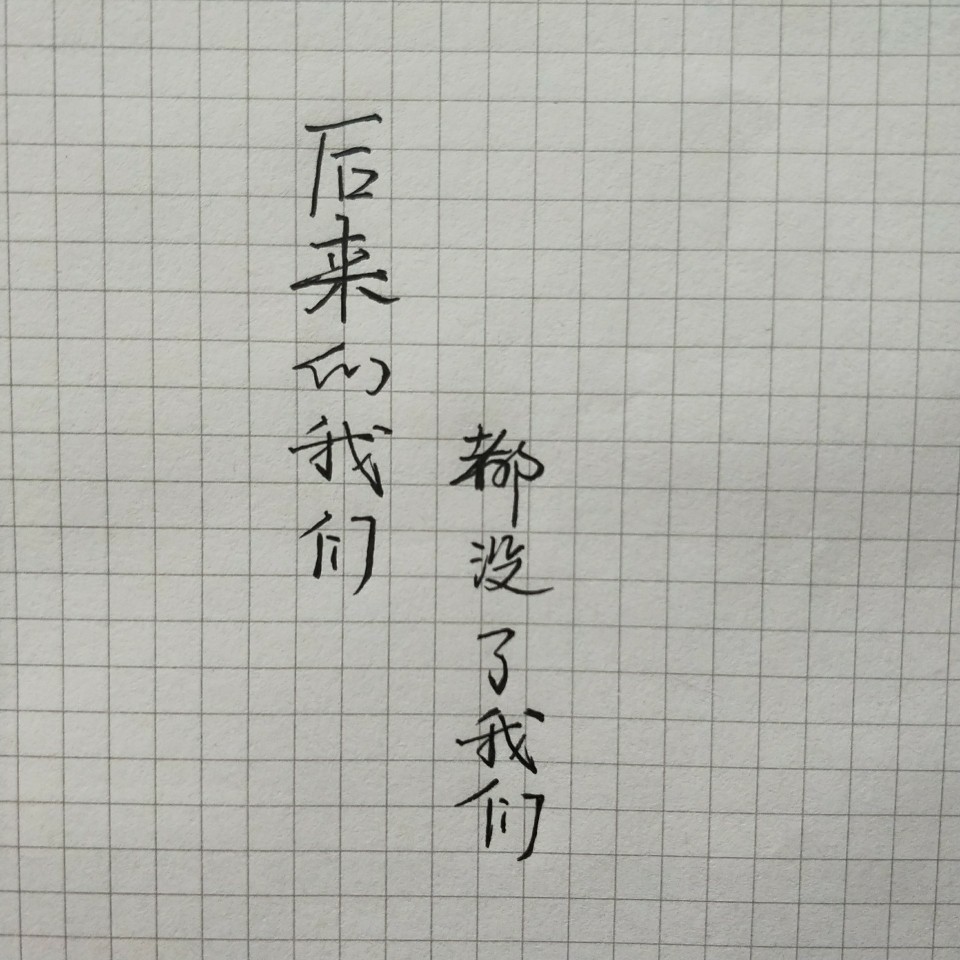 后来的我们
都没了我们